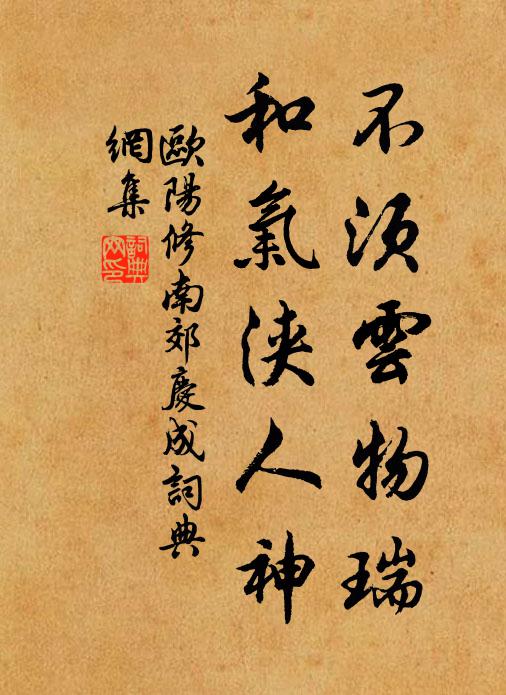 不須雲物瑞
和氣浹人神
歐陽修南郊慶成詞典
網集
詞典
网印